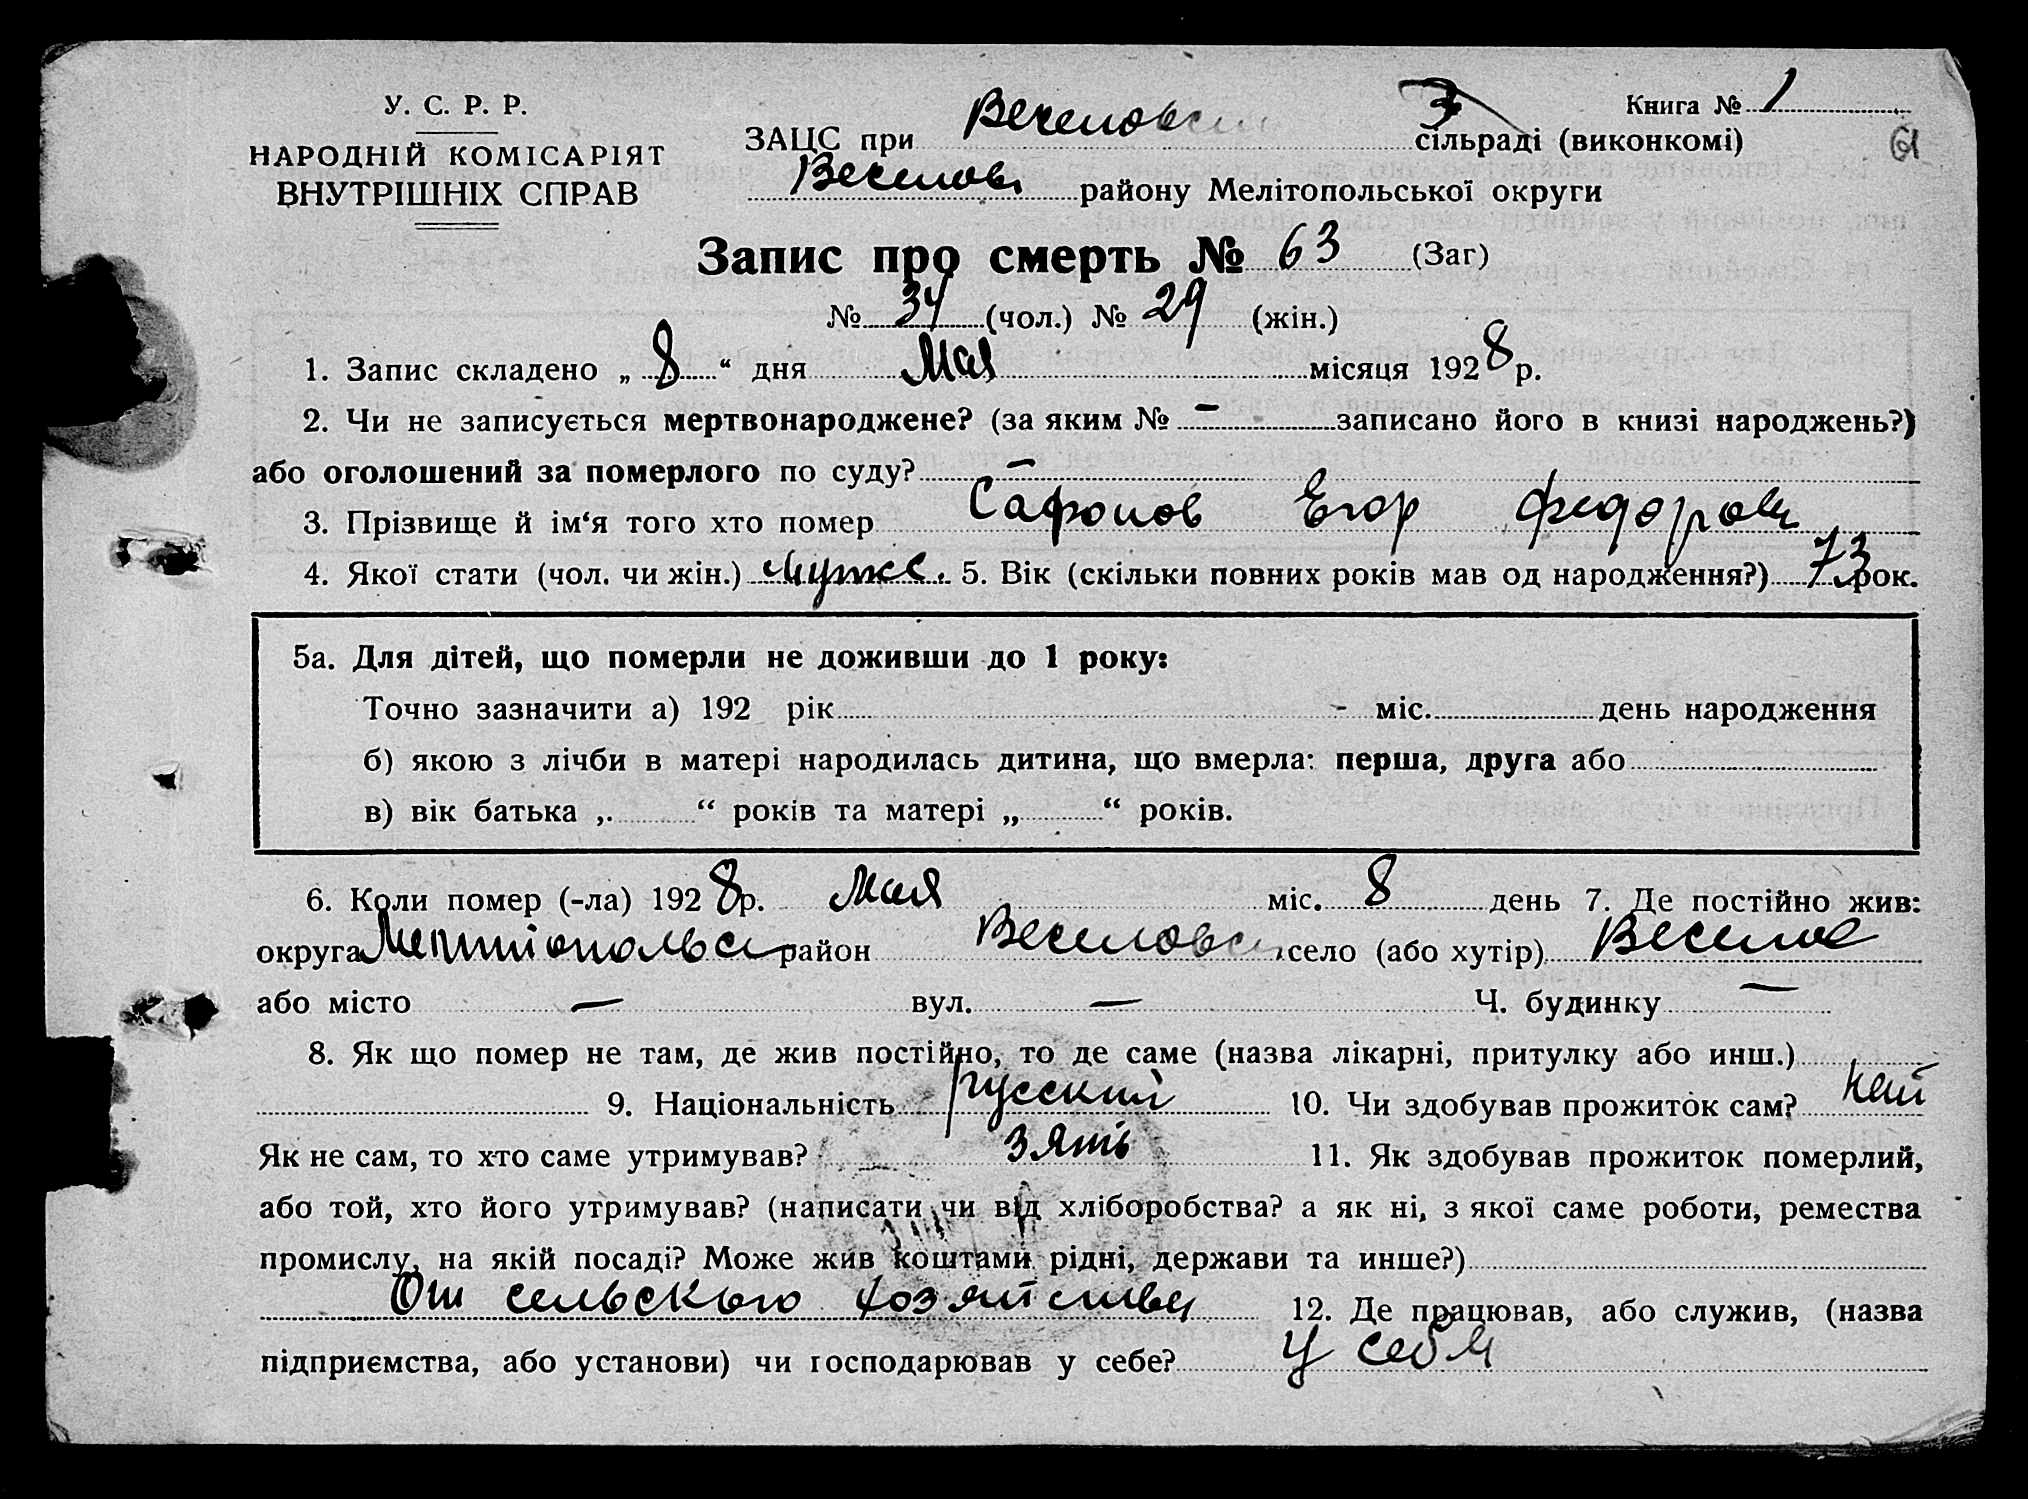 У. С. Р. Р.
НАРОДНІЙ КОМІСАРІЯТ
ВНУТРІШНІХ СПРАВ
Книга № 1
61
ЗАЦС при Веселовск сільраді (виконкомі)
Веселовс району Мелітопольської округи
Запис про смерть № 63 (Заг)
№ 34 (чол.) № 29 (жін.)
1. Запис складено „ 8 “ дня Мая місяця 1928 р.
2. Чи не записується мертвонароджене? (за яким № – записано його в книзі народжень?)
або оголошений за померлого по суду? –
3. Прізвище й ім‘я того хто помер Сафонов Егор Федоров
4. Якої стати (чол. чи жін.) мужс. 5. Вік (скільки повних років мав од народження?) 73 рок.
5а. Для дітей, що померли не доживши до 1 року:
Точно зазначити а) 192 рік - міс. день народження
б) якою з лічби в матері народилась дитина, що вмерла: перша, друга або
в) вік батька ,. “ років та матері „ “ років.
6. Коли помер (-ла) 1928 р. Мая міс. 8 день 7. Де постійно жив:
округа Мелитопольс район Веселовск село (або хутір) Веселое
або місто – вул. – Ч. будинку –
8. Як що помер не там, де жив постійно, то де саме (назва лікарні, притулку або инш.)
9. Національність русский 10. Чи здобував прожиток сам?
Як не сам, то хто саме утримував? зять 11. Як здобував прожиток померлий,
або той, хто його утримував? (написати чи від хліборобства? а як ні, з якої саме роботи, ремества
промислу, на якій посаді? Може жив коштами рідні, держави та инше?)
От сельского хозяйства 12. Де працював, або служив, (назва
підприємства, або установи) чи господарював у себе? У себя